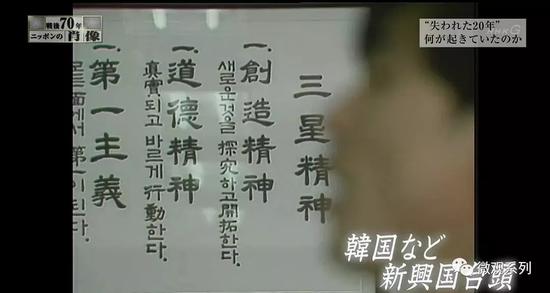 戦後70年
ニッポンの肖像
“失われた20年”
何が起きていたのか
三星精神
一.創造精神
새로운것을 探究하고 開拓한다.
一.道德精神
眞實되고 바르게 行動한다.
一.第一主義
모든面에서 第一이 된다.
韓国など
新興国台頭
微观系列